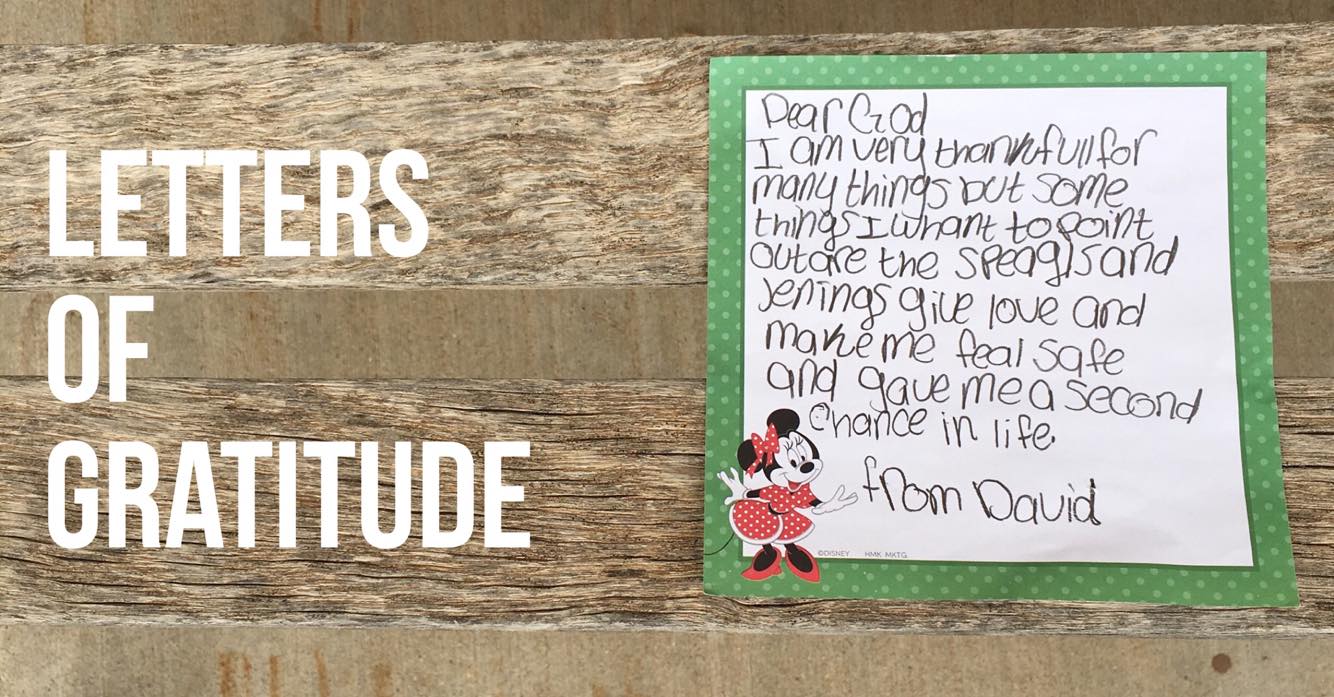 LETTERS
OF
GRATITUDE
Dear God
I am very thankfull for
many things but some
things I whant to point
out are the speagls and
jenings give love and
make me feal safe
and gave me a second
chance in life.
from David
©DISNEY HMK MKTG